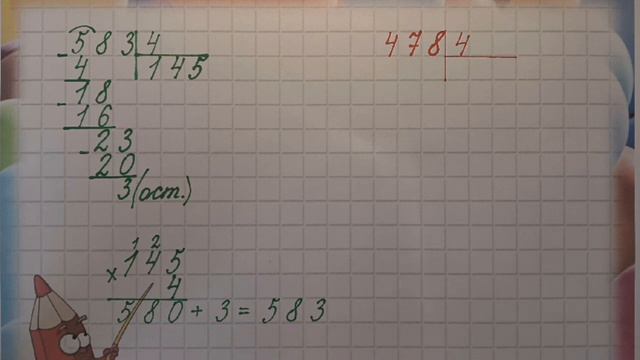 583 4
4 145
- 18
16
- 23
20
3 (ост.)
1 2
× 145
4
580 + 3 = 583
478 4